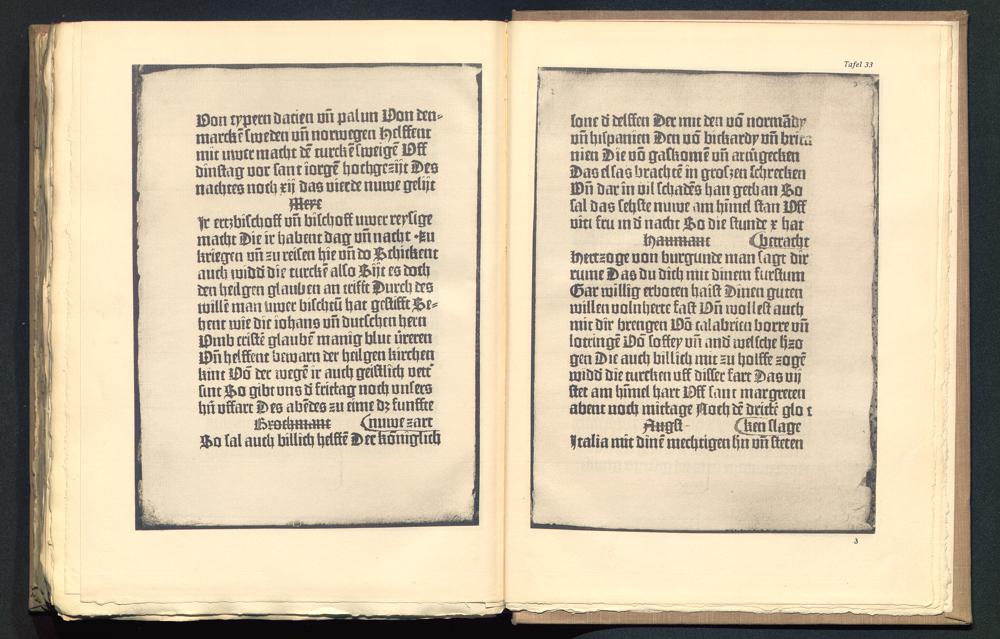 Von typern dacien vñ palun Von den=
marckẽ sweden vñ norwegen Helffent
mit uwer macht dẽ turckẽ sweigẽ Vff
dinstag vor sant iorgẽ hochgezijt Des
nachtes noch xij das vierde nuwe gelijt
Meye
Ir ertzbischoff vñ bischoff uwer reysige
macht Die ir habent dag vñ nacht zu
kriegen vñ zu reisen hie vñ do Schickent
auch widd die turckẽ also Sijt es doch
den heilgen glauben an trifft Durch des
willẽ man uwer bischeū hat gestifft Se=
hent wie die iohans vñ dutschen hern
Vmb cristẽ glaubẽ manig blut vreren
Vñ helffent bewarn der heilgen kirchen
kint Võ der wegẽ ir auch geistlich vett
sint So gibt vns d frietag noch vnsers
hñ vffart Des abẽdes zu eime dz funffte
Brochmant (nuwe zart
So sal auch billich helffẽ Der königlich
Tafel 33
sone d delffen Der mit den võ normãdy
vñ hispanien Den võ bickardy vñ brita
nien Die võ gaskomẽ vñ artugecken
Das elsas brachtẽ in groszen schrecken
Vñ dar in vil schadẽs han gethan So
sal das sehste nuwe am himel stan Vff
viti fru in d nacht So die stunde x hat
Haumant (betracht
Hertzoge von burgunde man sagt dir
rume Das du dich mit dinem furstum
Gar willig erboten haist Dinen guten
willen volnherte fast Vñ wollest auch
mit dir brengen Võ calabrien borre vñ
lotringẽ Võ soffey vñ and welsche hzo
gen Die auch billich mit zu holffe zogẽ
widd die turcken vff disser fart Das vij
stet am himel hart Vff sant margreten
abent noch mittage Noch dẽ drittẽ glo
Augst (ken slage
Italia mit dinẽ mechtigen hñ vñ steten
3